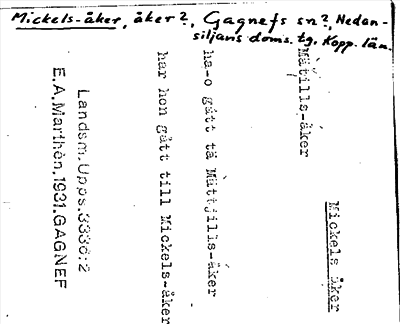 Mickels-åker, åker?, Gagnefs sn?, Nedan-
siljans doms. tg. Kopp. län.
Mickels åker
Mättills-åker
ha-o gått tä Mättjills-åker
har hon gått till Mickels-åker
Landsm.Upps.3336:2
E.A.Marthèn.1931.GAGNEF